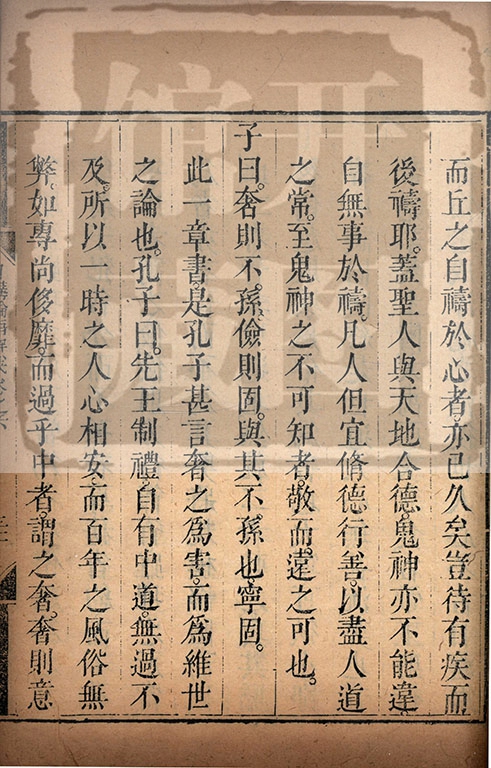 而丘之自禱於心者亦已久矣豈待有疾而
後禱耶。蓋聖人與天地合德。鬼神亦不能違。
自無事於禱。凡人但宜脩德行善。以盡人道
之常。至鬼神之不可知者。敬而遠之可也。
子曰。奢則不孫。儉則固。與其不孫也。寧固。
此一章書。是孔子甚言奢之爲害。而爲維世
之論也。孔子曰。先王制禮。自有中道。無過不
及。所以一時之人心相安。而百年之風俗無
弊。如專尚侈靡。而過乎中者。謂之奢。奢則意